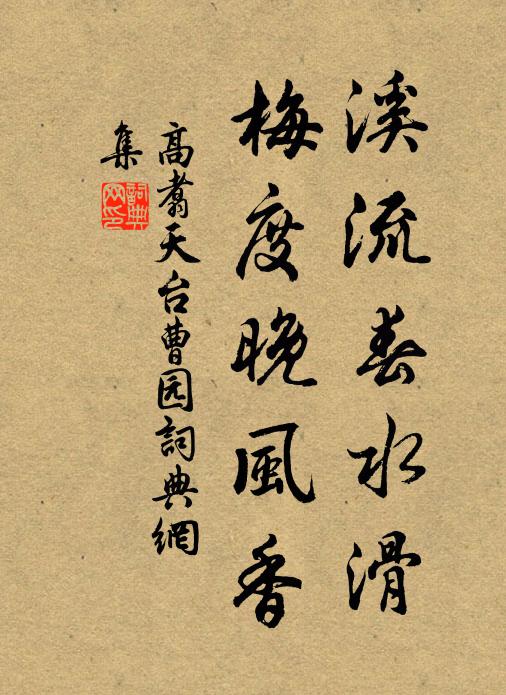 溪流春水滑
梅度晚風香
高翥天台曹园詞典網
集
詞典
网印